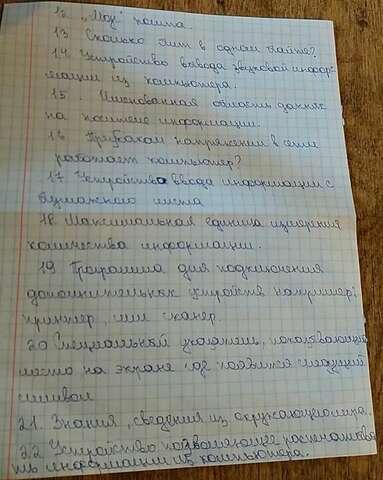 12 „Мозг" компа.
13 Сколько бит в одном байте?
14 Устройство вывода звуковой инфор-
мации из компьютера.
15. Именованная область данных
на носителе информации.
16 При каком напряжении в сети
работает компьютер?
17 Устройства ввода информации с
бумажного листа
18 Максимальная единица измерения
количества информации.
19 Программа для подключения
дополнительных устройств например:
принтер, или сканер.
20 Специальный указатель, показывающий
место на экране где появится следующий
символ
21. Знания, сведения из окружающего мира.
22 Устройство позволяющее распечатыва
ть информации из компьютера.